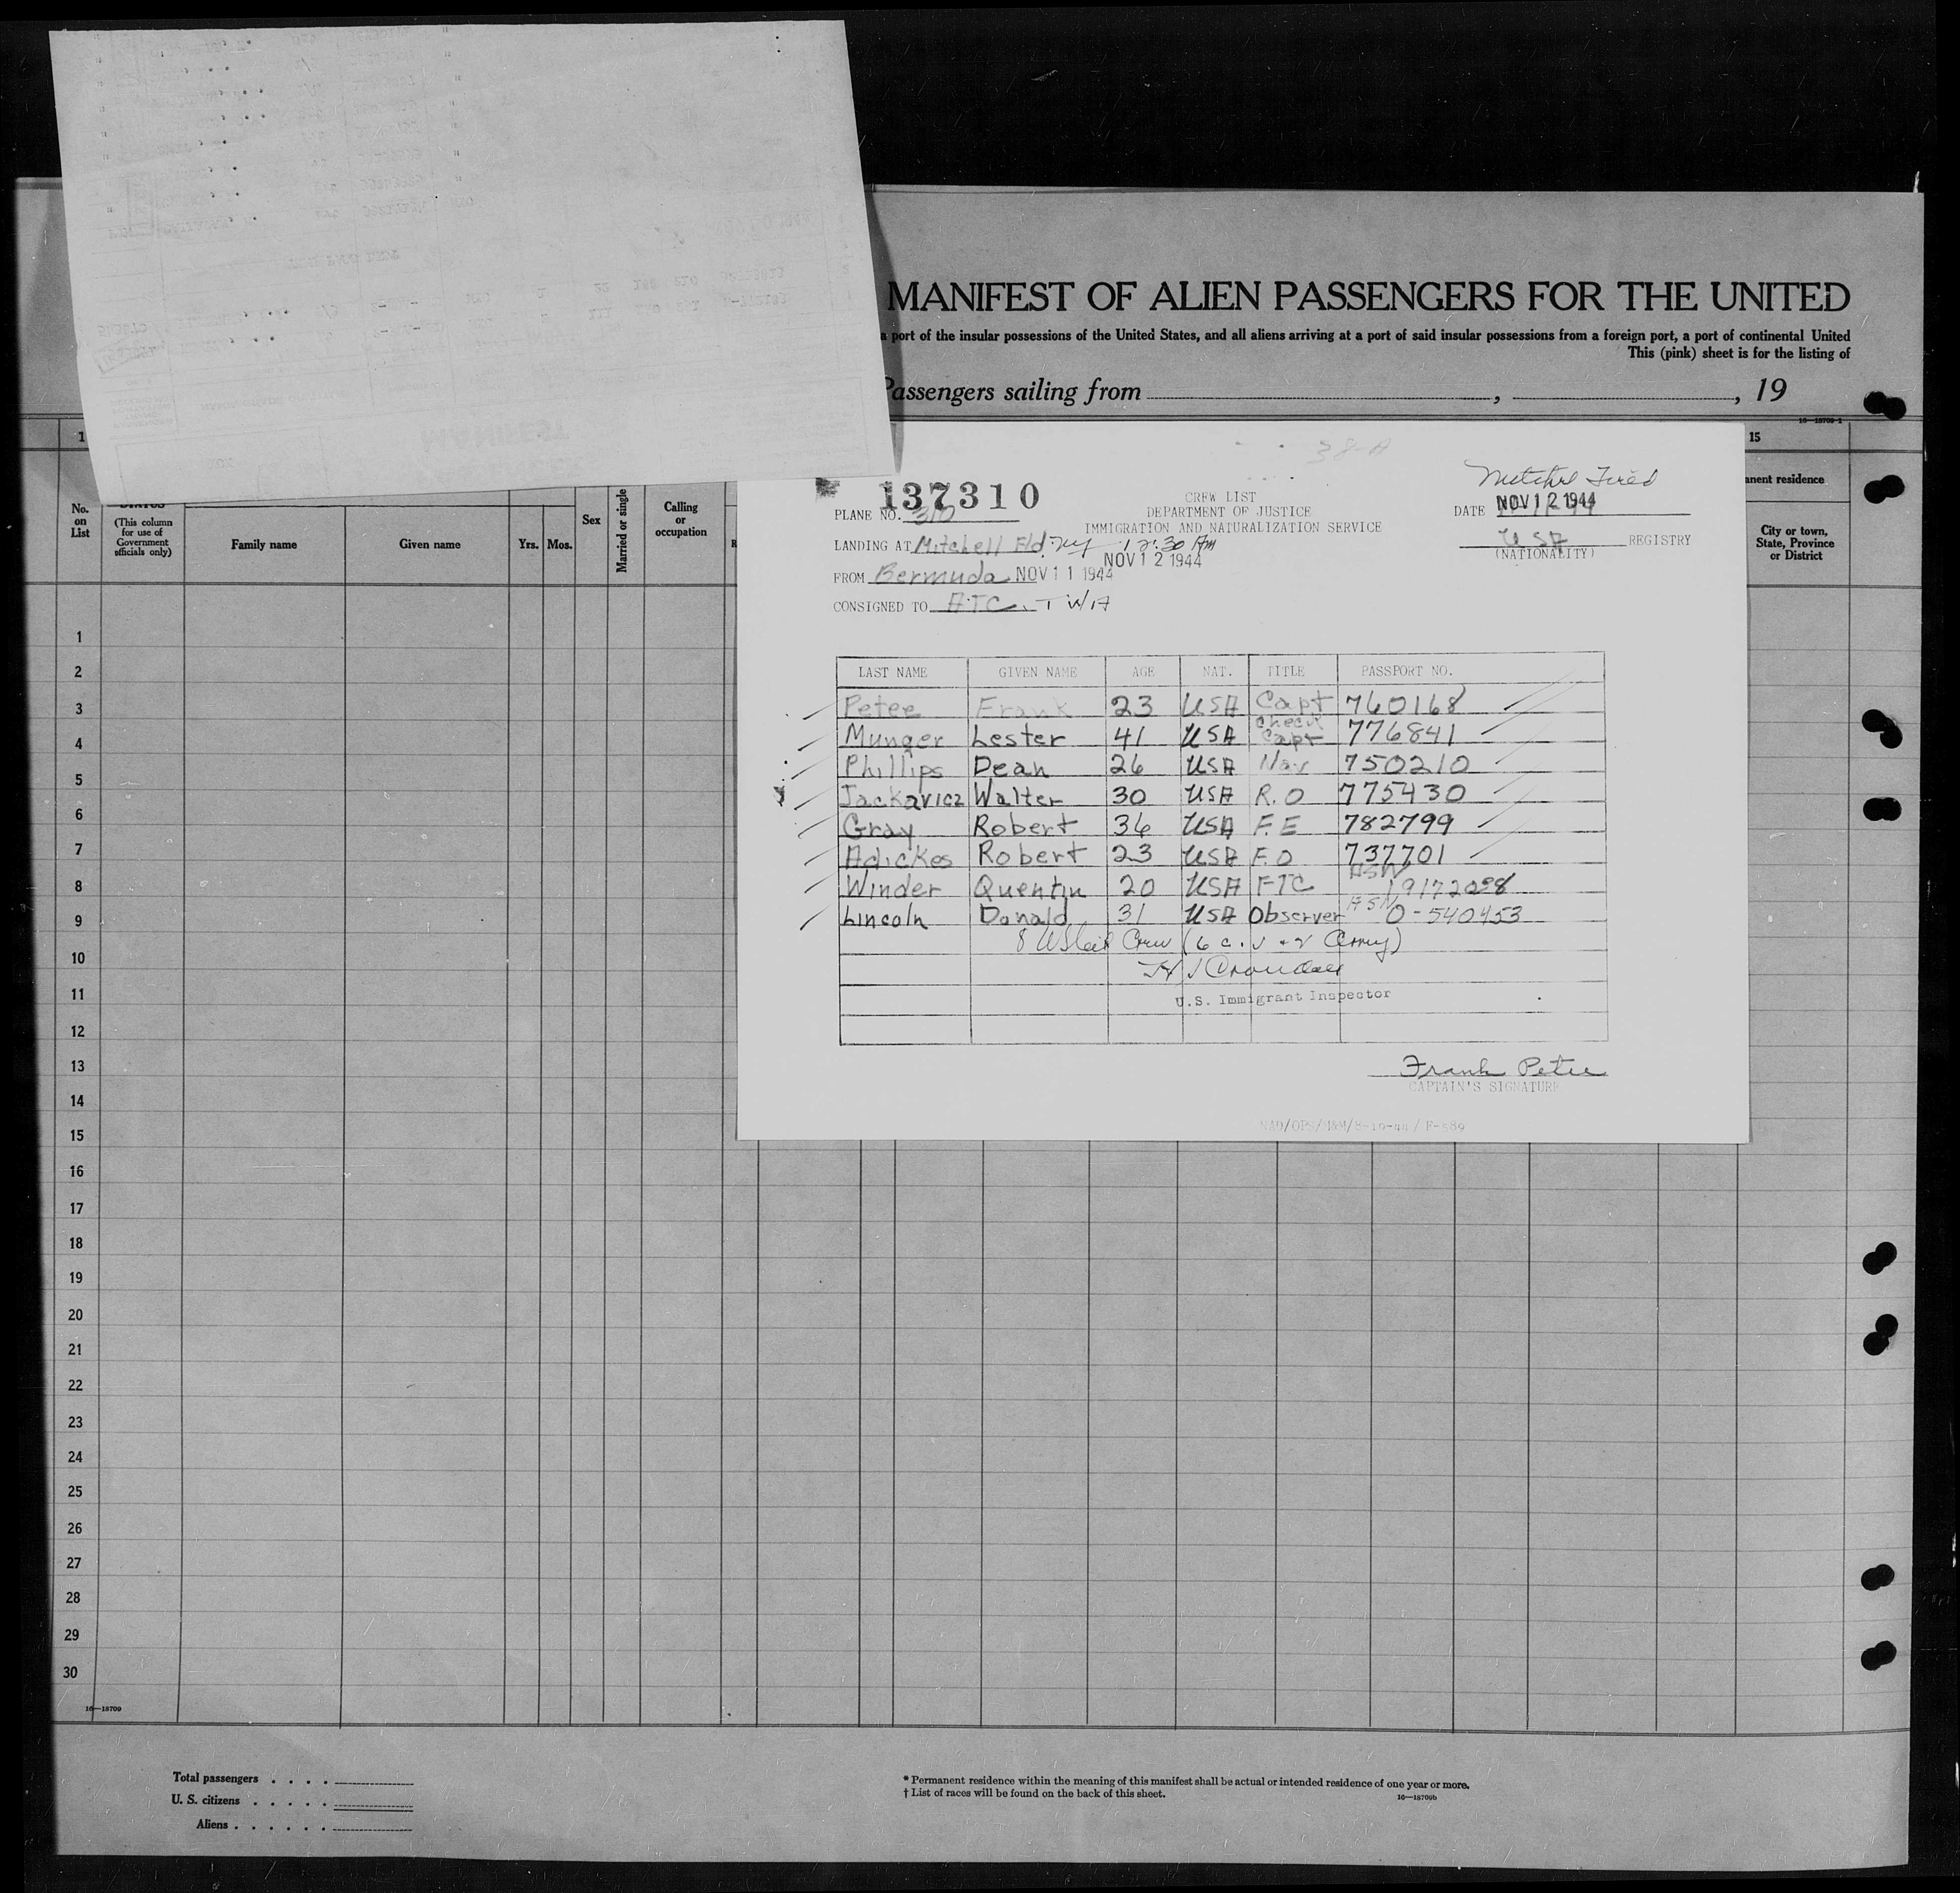 MANIFEST OF ALIEN PASSENGERS FOR THE UNITED
a port of the insular possessions of the United States, and all aliens arriving at a port of said insular possessions from a foreign port, a port of continental United
This (pink) sheet is for the listing of
Passengers sailing from , , 19
16—18709-1
1
15
No. on List
STATUS
(This column for use of Government officials only)
Family name
Given name
Yrs.
Mos.
Sex
Married or single
Calling or occupation
nent residence
City or town, State, Province or District
38-A
Mitchel Field
137310
CREW LIST
PLANE NO. 310
DEPARTMENT OF JUSTICE
DATE NOV 12 1944
IMMIGRATION AND NATURALIZATION SERVICE
LANDING AT Mitchell Fld. NY 12:30 AM
USA REGISTRY
(NATIONALITY)
NOV 12 1944
FROM Bermuda NOV 11 1944
CONSIGNED TO ATC. TWA
LAST NAME GIVEN NAME AGE NAT. TITLE PASSPORT NO.
Petee Frank 23 USA Capt 760168
Munger Lester 41 USA Check Capt 776841
Phillips Dean 26 USA Nav 750210
Jackavicz Walter 30 USA R.O 775430
Gray Robert 36 USA F.E 782799
Adickes Robert 23 USA F.O 737701
Winder Quentin 20 USA FTC ASN 19172098
Lincoln Donald 31 USA Observer ASN O-540453
8 US Cit Crew (6 c. v + 2 Army)
H J Crandall
U.S. Immigrant Inspector
Frank Petee
CAPTAIN'S SIGNATURE
NAD/OPS/M&M/8-19-44/F-589
1
2
3
4
5
6
7
8
9
10
11
12
13
14
15
16
17
18
19
20
21
22
23
24
25
26
27
28
29
30
16—18709
Total passengers . . . .
U. S. citizens . . . . .
Aliens . . . . . .
* Permanent residence within the meaning of this manifest shall be actual or intended residence of one year or more.
† List of races will be found on the back of this sheet.
16—18709b